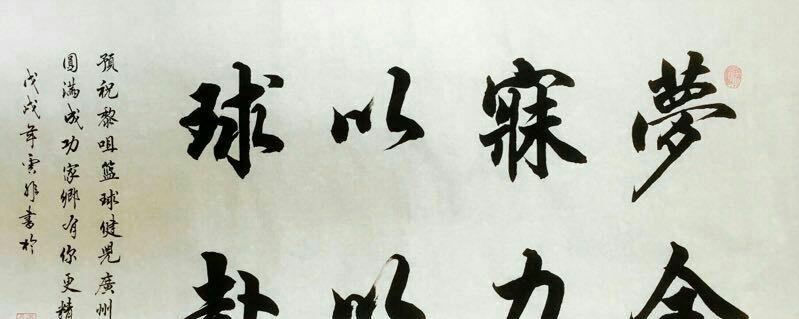 夢寐以球
全力以赴
預祝黎咀籃球健兒廣州
圓滿成功家鄉有你更精
戊戌年雲書於